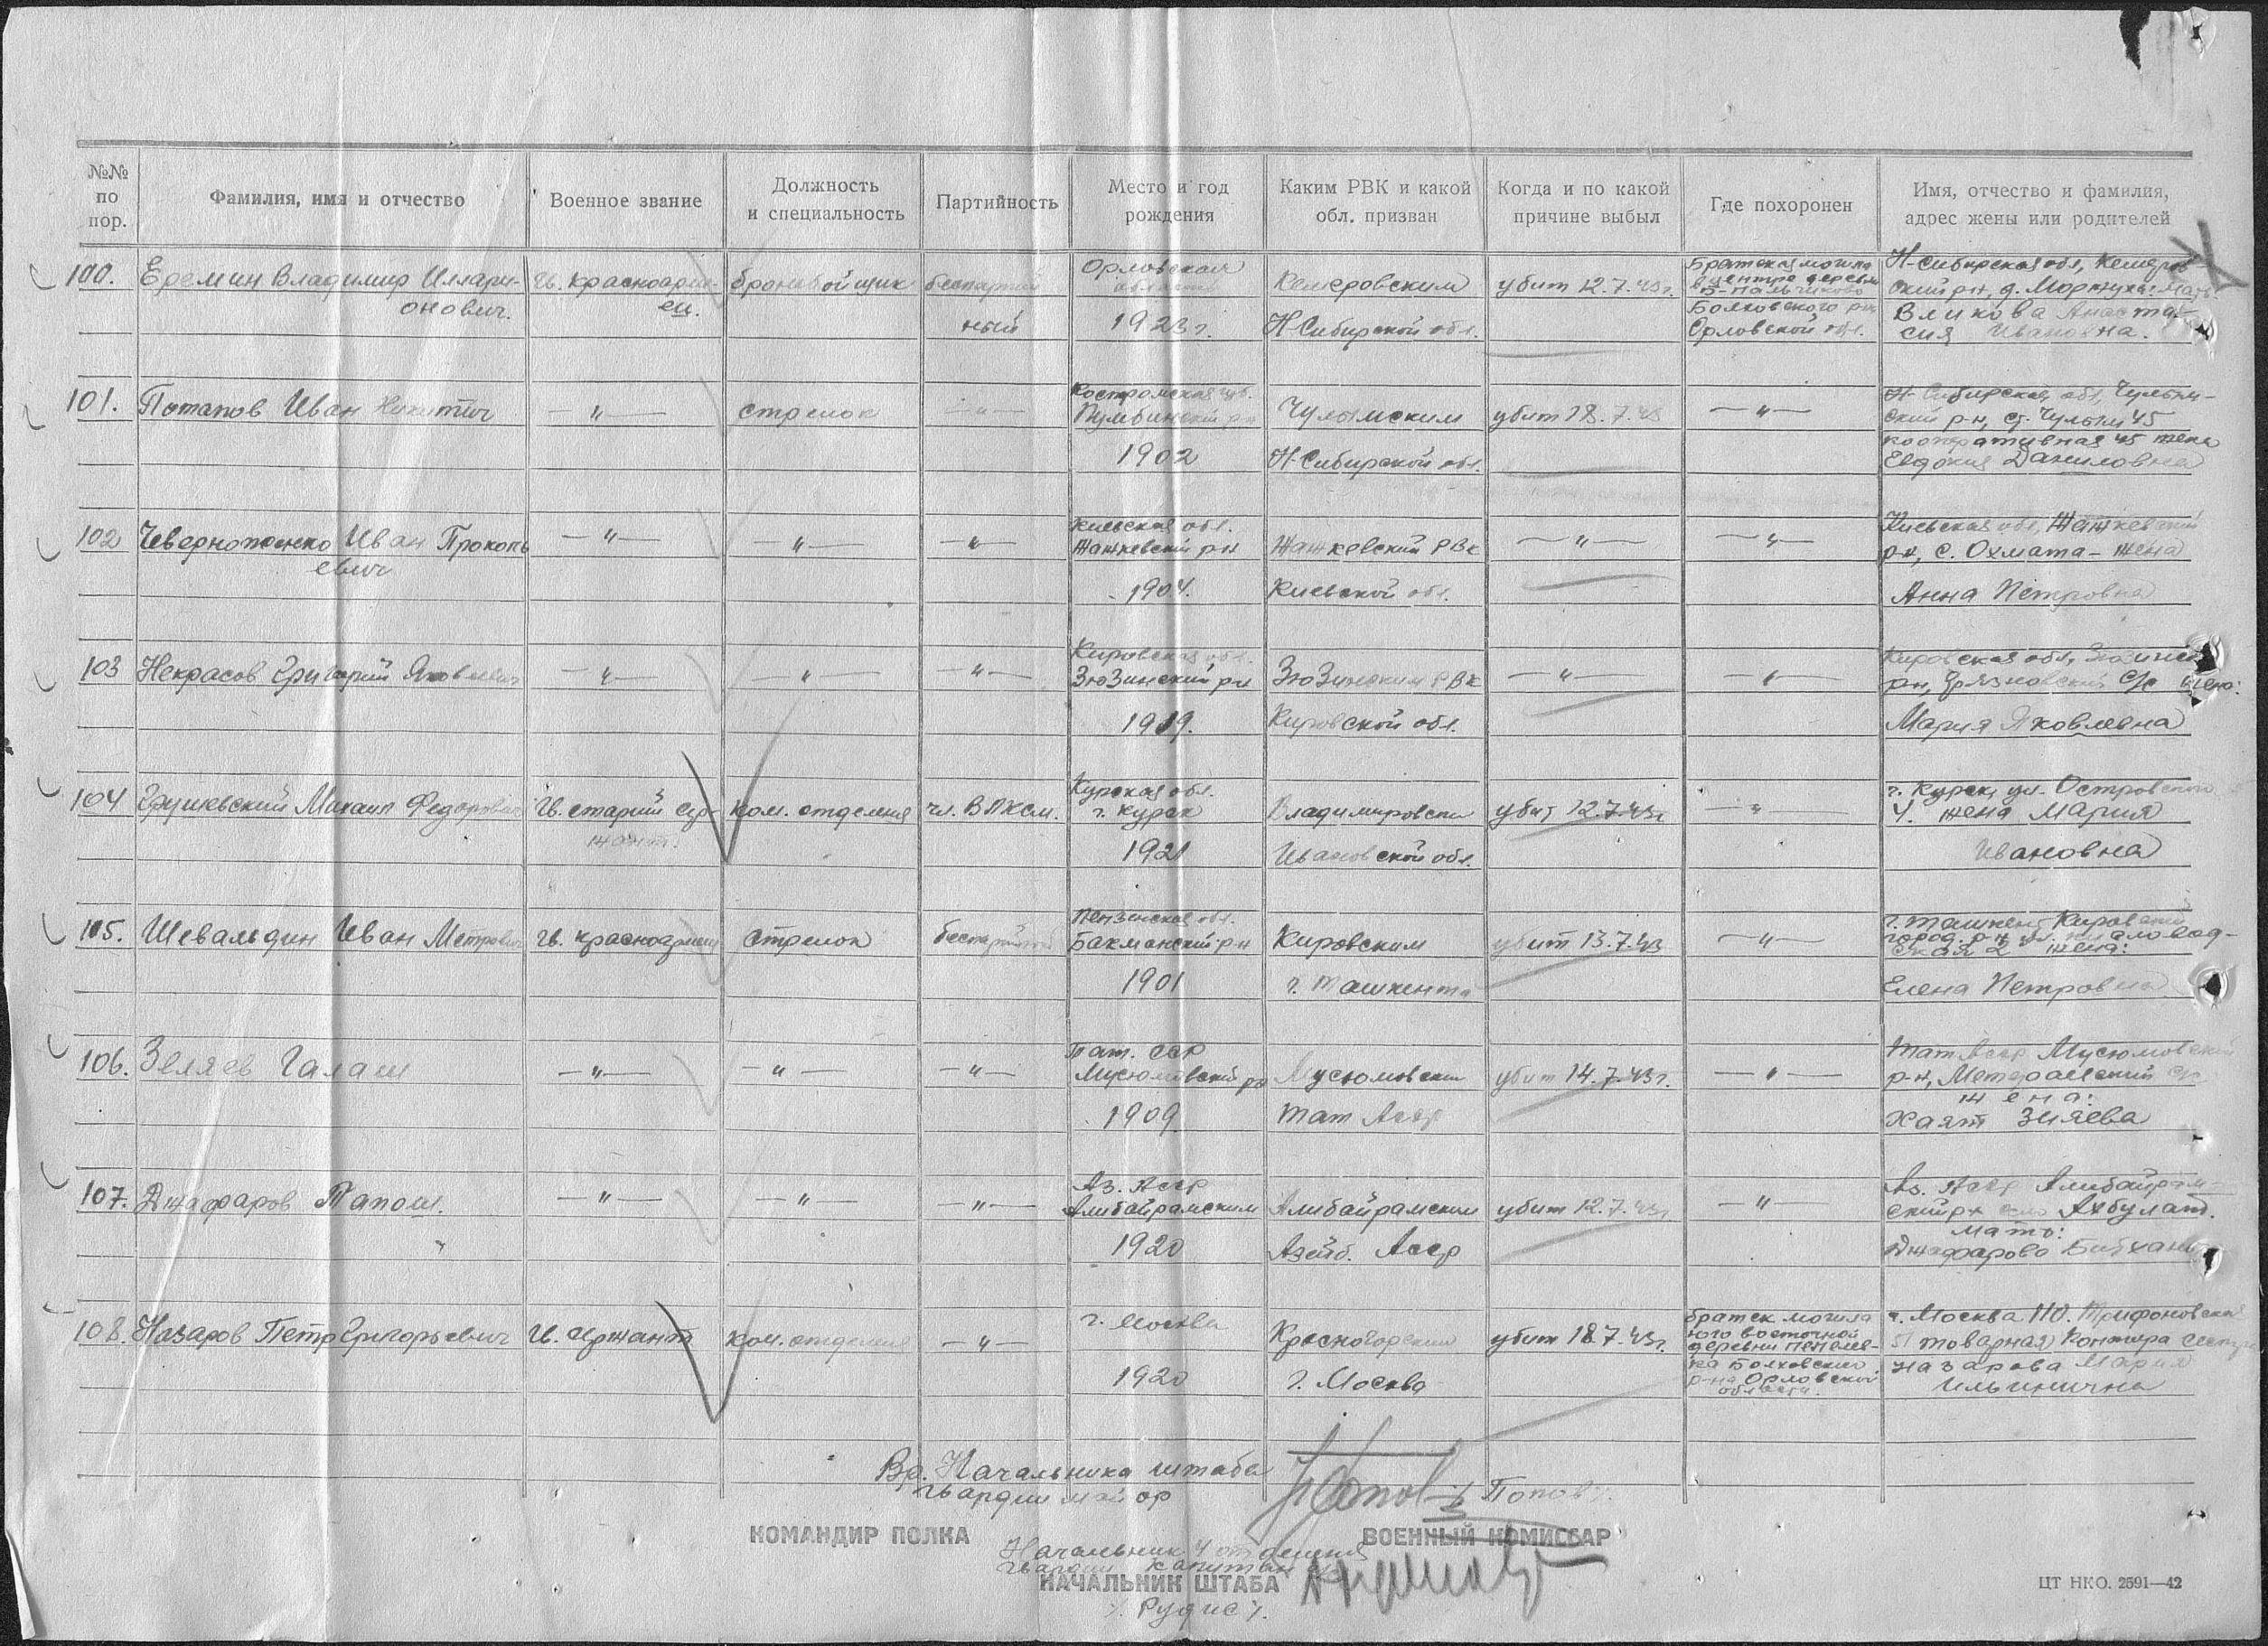 №№ по пор.
Фамилия, имя и отчество
Военное звание
Должность и специальность
Партийность
Место и год рождения
Каким РВК и какой обл. призван
Когда и по какой причине выбыл
Где похоронен
Имя, отчество и фамилия, адрес жены или родителей
100. Еремин Владимир Иллари-
онович.
Гв. красноарме-
ец.
бронебойщик
беспартий
ный
Орловская
область
1923 г.
Кемеровским
Н-Сибирской обл.
убит 12.7.43г.
Братская могила
в центре деревни
Болховского р-на
Орловской обл.
Н-Сибирская обл, Кемеров-
ский р-н, д. мать
Анаста-
сия Ивановна.
101. Потапов Иван Никитич
—"—
стрелок
—"—
Костромская губ.
1902
Чулымским
Н-Сибирской обл.
убит 18.7.43
—"—
Н-Сибирская обл, Чулым-
ский р-н, ст. Чулым 45
кооперативная 45 жена
Евдокия Даниловна
102 Иван Прокопь
евич
—"—
—"—
—"—
Киевская обл.
Жашкевский р-н
1904.
Жашкевский РВК
Киевской обл.
—"—
—"—
Киевская обл, Жашкевский
р-н, с. Охмата - жена
Анна Петровна
103 Некрасов Григорий Яковлевич
—"—
—"—
—"—
Кировская обл.
ЗюЗинский р-н
1919.
ЗюЗинским РВК
Кировской обл.
—"—
—"—
Кировская обл,
р-н, с/с жена:
Мария Яковлевна
104 Грушевский Михаил Федорович
Гв. старий сер-
жант.
ком. отделения
чл. ВЛКСМ.
Курская обл.
г. Курск
1921
Владимировски
Ивановской обл.
убит 12.7.43г
—"—
г. Курск, ул. Островского
4. жена Мария
Ивановна
105. Шевальдин Иван Метрович
Гв. красноармеец
Стрелок
беспартийный
Пензенская обл.
Бакманский р-н
1901
Кировским
г. Ташкента
убит 13.7.43
—"—
г. Ташкент Кировский
город. р-н ул.
ская 2 жена:
Елена Петровна
106. Зеляев Галаш
—"—
—"—
—"—
Тат. ССР
Мусюмовский рн
1909
Мусюмовским
Тат Асср
убит 14.7.43г.
—"—
Тат Асср Мусюмовский
р-н, с/с
жена:
Хаят Зияева
107. Джафаров Папош.
—"—
—"—
—"—
Аз. Асср
Алибайрамским
1920
Алибайрамским
Азейб. Асср
убит 12.7.43г.
—"—
Аз. Асср Алибайрам-
ский рн Ахбулат.
мать:
Джафарова
108. Назаров Петр Григорьевич
Гв. Сержант
ком. отделения
—"—
г. Москва
1920
Красногорским
г. Москва
убит 18.7.43г.
братск могила
юго восточной
деревни
ка Болховского
р-на Орловской
области.
г. Москва 110. Трифоновская
51 товарная контора сестра
Назарова Мария
Ильинична
Вр. Начальника штаба
гвардии майор
Попов
КОМАНДИР ПОЛКА
ВОЕННЫЙ КОМИССАР
Начальник 4 отделения
гвардии капитан
НАЧАЛЬНИК ШТАБА
ЦТ НКО. 2591—42